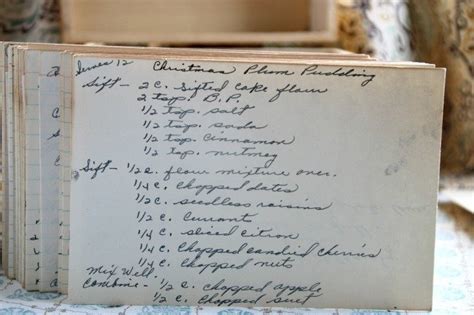 Serves 12 Christmas Plum Pudding
Sift - 2 c. sifted cake flour
2 tsp. B.P.
1/2 tsp. salt
1/2 tsp. soda
1/2 tsp. cinnamon
1/2 tsp. nutmeg
Sift - 1/2 c. flour mixture over.
1/4 c. chopped dates
1/2 c. seedless raisins
1/2 c. currants
1/4 c. sliced citron
1/4 c. chopped candied cherries
1/4 c. chopped nuts
Mix Well.
Combine - 1/2 c. chopped apple
1/2 c. chopped suet